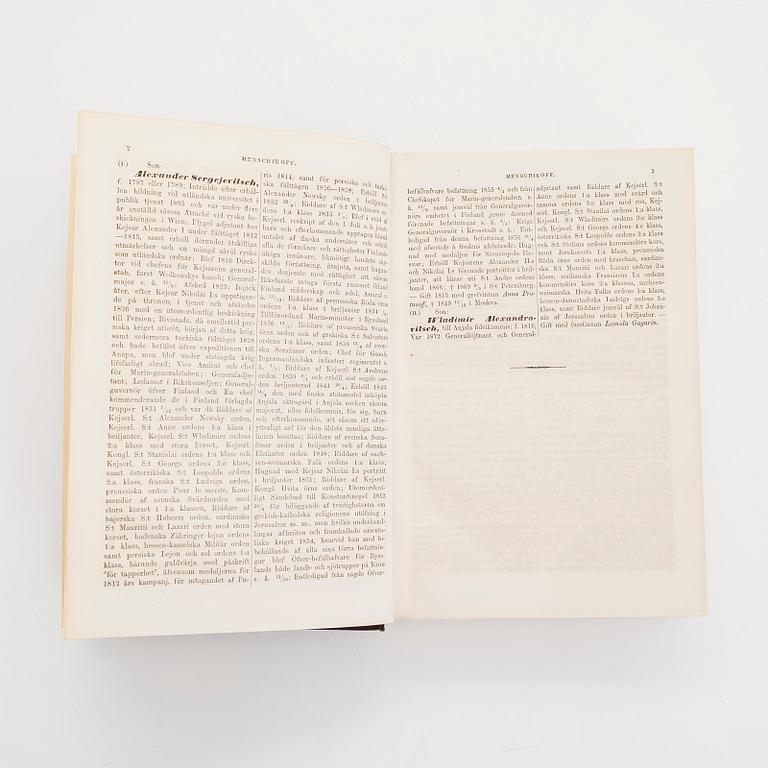 2
MENSCHIKOFF.
(I.) Son:
Alexander Sergejevitsch,
f. 1787 eller 1789; Inträdde efter erhål-
len bildning vid utländska universitet i
publik tjenst 1805 och var under flere
år anställd såsom Attaché vid ryska be-
skickningen i Wien; Flygel adjutant hos
Kejsar Alexander I under fälttåget 1812
—1815, samt erhöll derunder åtskilliga
utmärkelser och en mängd såväl ryska
som utländska ordnar; Blef 1816 Direk-
tor vid chefens för Kejsarens general-
stab, furst Wolkonskys kansli; General-
major s. å.; Afsked 1823; Ingick
åter, efter Kejsar Nikolai I:s uppstigan-
de på thronen, i tjenst och afsändes
1826 med en utomordentlig beskickning
till Persien; Bivistade, då emellertid per-
siska kriget utbröt, början af detta krig,
samt sedermera turkiska fälttåget 1828
och hade befälet öfver expeditionen till
Anapa, men blef under sistsagda krig
lifsfarligt sårad; Vice Amiral och chef
för Marin-generalstaben; Generaladju-
tant; Ledamot i Rikskonseljen; General-
guvernör öfver Finland och En chef
kommenderande de i Finland förlagda
trupper 1831 1/12 och var då Riddare af
Kejserl. S:t Alexander Newsky orden,
Kejserl. S:t Anne ordens 1:a klass i
briljanter, Kejserl. S:t Wladimirs ordens
2:a klass med stora korset, Kejserl.
Kongl. S:t Stanislai ordens 1:a klass och
Kejserl. S:t Georgs ordens 3:e klass,
samt österrikiska S:t Leopolds ordens
2:a klass, franska S:t Ludvigs orden,
preussiska orden Pour le merite, Kom-
mendör af svenska Svärdsorden med
stora korset i 1:a klassen, Riddare af
bajerska S:t Huberts orden, sardiniska
S:t Mauritii och Lazari orden med stora
korset, badenska Zähringer lejon ordens
1:a klass, hessen-kasselska Militär orden
samt persiska Lejon och sol ordens 1:a
klass, bärande guldvärja med påskrift
"för tapperhet", äfvensom medaljerna för
1812 års kampanj, för intagandet af Pa-
ris 1814, samt för persiska och turki-
ska fälttågen 1826—1828; Erhöll S:t
Alexander Newsky orden i briljanter
1832; Riddare af S:t Wladimirs or-
dens 1:a klass 1833; Blef i stöd af
Kejserl. reskript af den 1 Juli s. å. jemte
barn och efterkommande upptagen bland
antalet af finska undersåter och erhöll
alla de förmåner och rättigheter Finlands
öfriga invånare, likmätigt landets sär-
skilda författning, åtnjuta, samt hugna-
des derjemte med rättighet att såsom
Riksfurste intaga första rummet ibland
Finlands ridderskap och adel; Amiral s.
å.; Riddare af preussiska Röda örns
ordens 1:a klass i briljanter 1834;
Tillförordnad Marin-minister i Ryssland
1836; Riddare af preussiska Svarta
örns orden och af grekiska S:t Salvators
ordens 1:a klass, samt 1838 af sven-
ska Serafimer orden; Chef för Gamla
Ingermanländska infanteri regimentet s.
å.; Riddare af Kejserl. S:t Andreas
orden 1839 och erhöll sist sagde or-
den briljanterad 1841; Erhöll 1831
den med finska statsmedel inköpta
Anjala sätesgård i Anjala socken såsom
majorat, eller fideikommis, för sig, barn
och efterkommande, att såsom ett oför-
ytterligt arf för den äldste manliga ätts-
linien besittas; Riddare af svenska Sera-
fimer orden i briljanter och af danska
Elefanter orden 1848; Riddare af sach-
sen-weimarska Falk ordens 1:a klass;
Hugnad med Kejsar Nikolai I:s porträtt
i briljanter 1851; Riddare af Kejserl.
Kongl. Hvita örns orden; Utomordent-
ligt Sändebud till Konstantinopel 1853
för biläggande af tvistigheterna om
grekisk-katholska religionens utöfning i
Jerusalem m. m., men hvilka underhand-
lingar afbrötos och framkallade oriento-
liska kriget 1854, hvarvid han med bi-
behållande af alla sina förra befattnin-
gar blef Öfver-befälhafvare för Ryss-
lands både landt- och sjötrupper på Krim
s. å.; Entledigad från sagde Öfver-
MENSCHIKOFF.
3
befälhafvare befattning 1855 och från
Chefskapet för Marin-generalstaben s.
å., samt jemväl från Generalguver-
nörs embetet i Finland jemte dermed
förenade befattningar s. å.; Krigs
Generalguvernör i Kronstadt s. å.; Ent-
ledigad från denna befattning 1856
med afseende å fredens afslutande; Hug-
nad med medaljen för Sevastopols för-
svar; Erhöll Kejsarene Alexander II:s
och Nikolai I:s förenade porträtter i bril-
janter, att bäras uti S:t Andre ordens
band 1866; † 1869 i S:t Petersburg.
— Gift 1815 med grefvinnan Anna Pro-
tasoff, † 1849 i Moskwa.
(II.) Son:
Wladimir Alexandro-
vitsch, till Anjala fideikommis; f. 1816;
Var 1872 Generallöjtnant och General-
adjutant samt Riddare af Kejserl. S:t
Anne ordens 1:a klass med svärd och
samma ordens 3:e klass med ros, Kej-
serl. Kongl. S:t Stanilai ordens 1:a klass,
Kejserl. S:t Wladimirs ordens 3:e klass
och Kejserl. S:t Georgs ordens 4:e klass,
österrikiska S:t Leopolds ordens 2:a klass
och S:t Stefans ordens kommendörs kors,
samt Jernkorsets 1:a klass, preussiska
Röda örns orden med kraschan, sardini-
ska S:t Mauritii och Lazari ordens 2:a
klass, sicilianska Fransiscus I:s ordens
kommendörs kors 2:a klassen, sachsen-
weimarska Hvita Falks ordens 1:a klass,
hessen-darmstadtska Ludvigs ordens 2:a
klass, samt Riddare jemväl af S:t Johan-
nis af Jerusalem orden i briljanter s. å.
— Gift med furstinnan Leonida Gagarin.